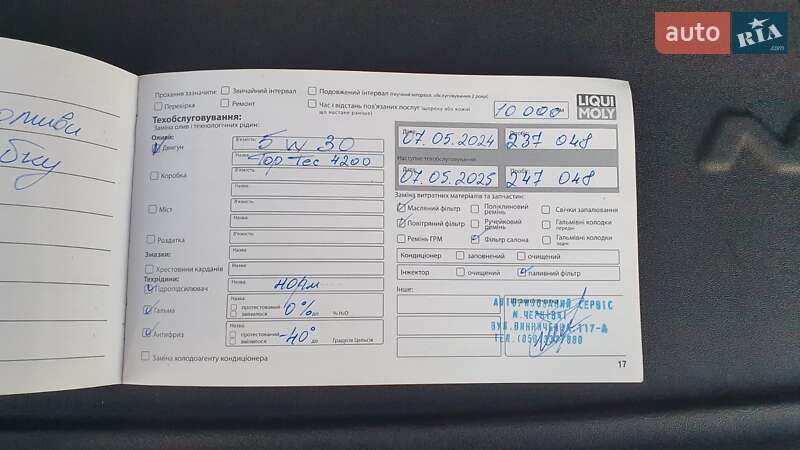 auto RIA.com
бку
Прохання зазначити:
Звичайний інтервал
Подовжений інтервал
Перевірка
Ремонт
Час і відстань пов'язаних послуг (щороку або кожні
10 000 км
що настане раніше)
LIQUI MOLY
Техобслуговування:
Заміна олив і технологічних рідин:
Оливи:
Двигун
В'язкість:
5 W 30
Назва:
Top Tec 4200
Коробка
В'язкість:
Назва:
Міст
В'язкість:
Назва:
Роздатка
В'язкість:
Назва:
Змазки:
Хрестовини карданів
Назва:
Техрідини:
Гідропідсилювач
Назва:
норм
Гальма
Назва:
протестований
змінилося
0% до % H₂O
Антифриз
Назва:
протестований
змінилося
-40° до Градусів Цельсія
Заміна холодоагенту кондиціонера
Дата:
07.05.2024
Пробіг:
237 048
Наступне техобслуговування
07.05.2025
247 048
Заміна витратних матеріалів та запчастин:
Масляний фільтр
Поліклиновий ремінь
Свічки запалювання
Повітряний фільтр
Ручейковий ремінь
Гальмівні колодки передні
Ремінь ГРМ
Фільтр салона
Гальмівні колодки задні
Кондиціонер
заповнений
очищений
Інжектор
очищений
паливний фільтр
Інше:
АВТОРИЗОВАНИЙ СЕРВІС
М.ЧЕРНІВЦІ
ВУЛ.ВИННИЧЕНКА,117-А
17